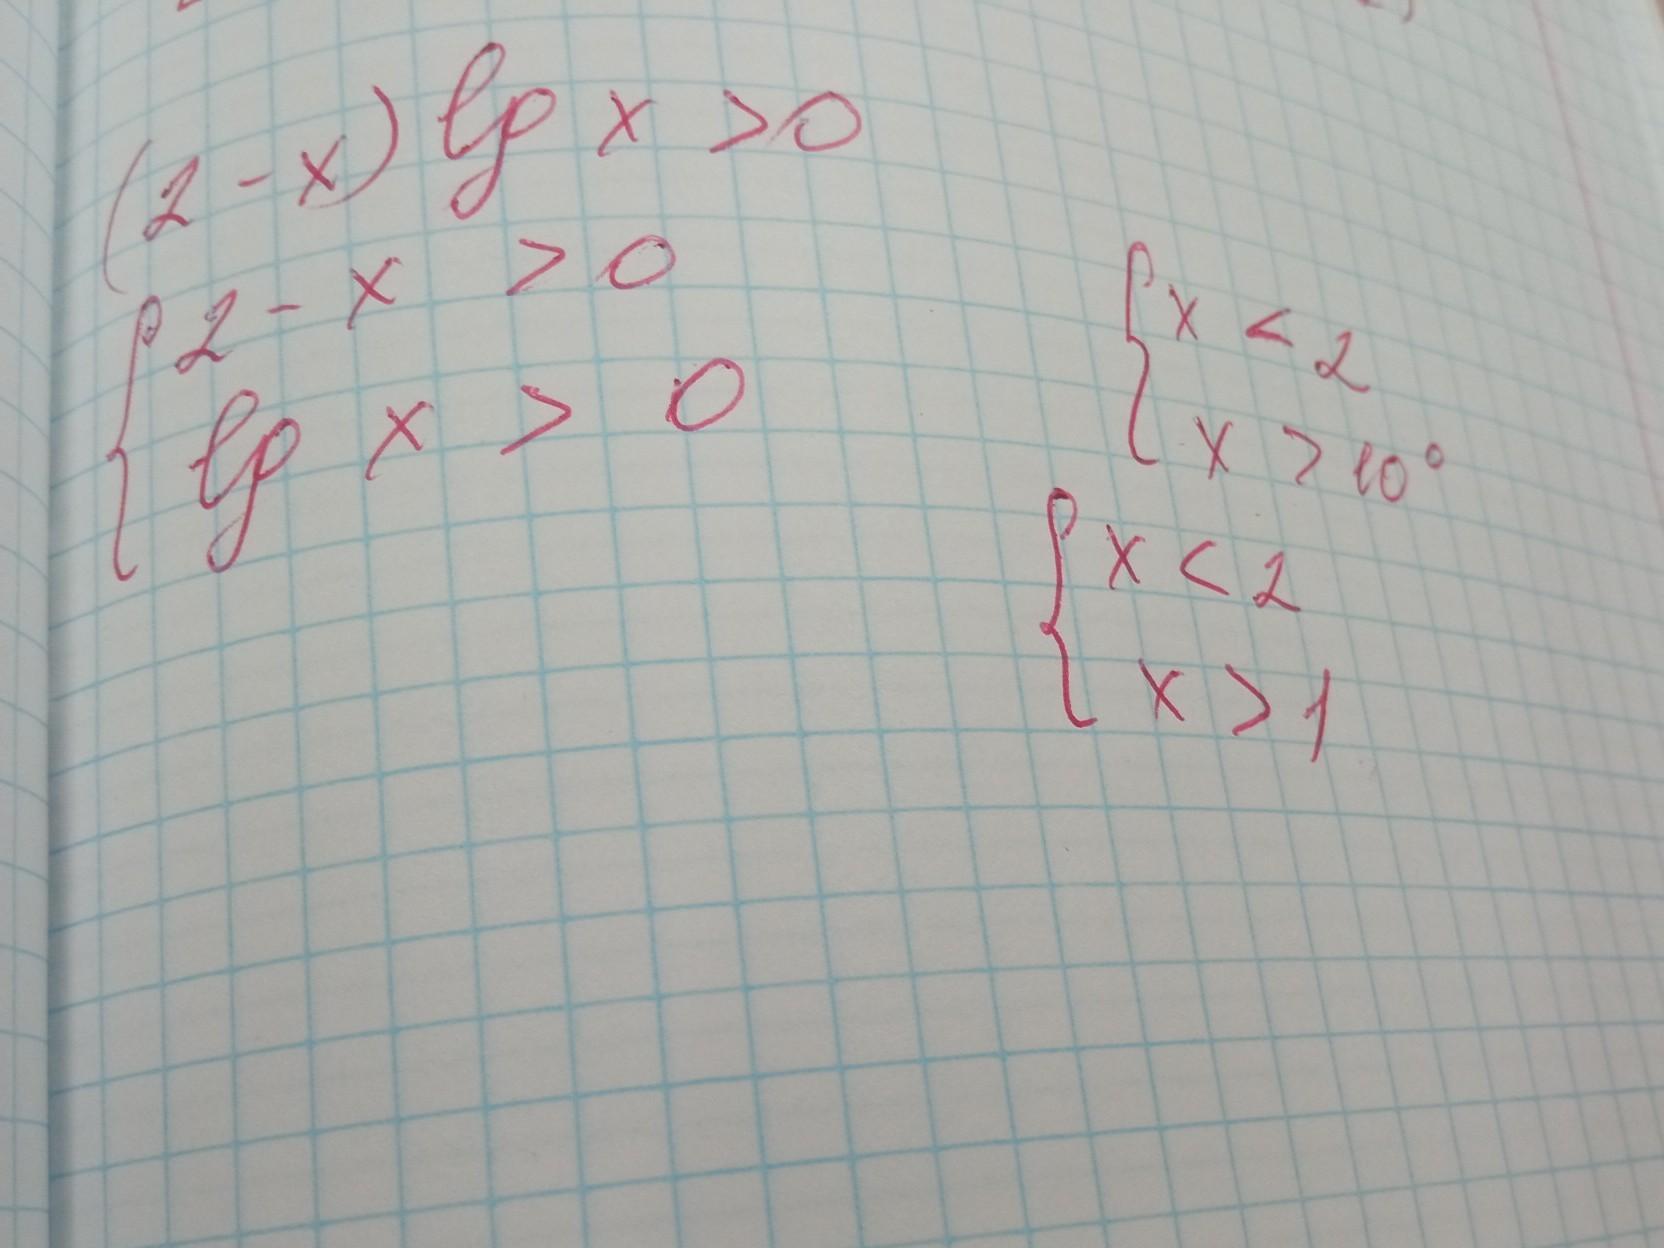 (2 - x) lg x > 0
{ 2 - x > 0
lg x > 0
{ x < 2
x > 10⁰
{ x < 2
x > 1